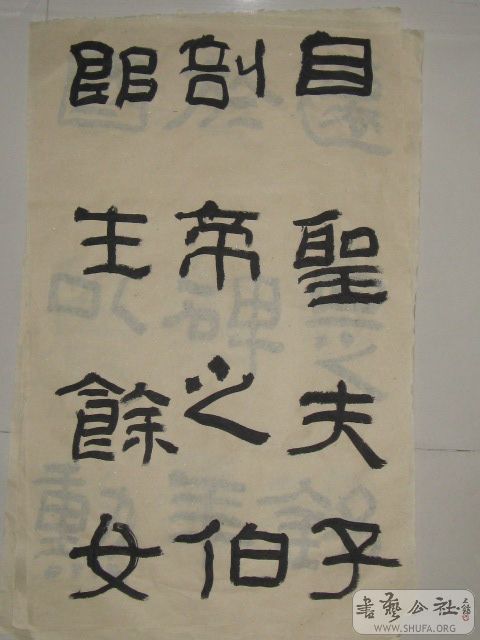 自聖夫子
剖帝之伯
郎主餘女
書藝公社
WWW.SHUFA.ORG